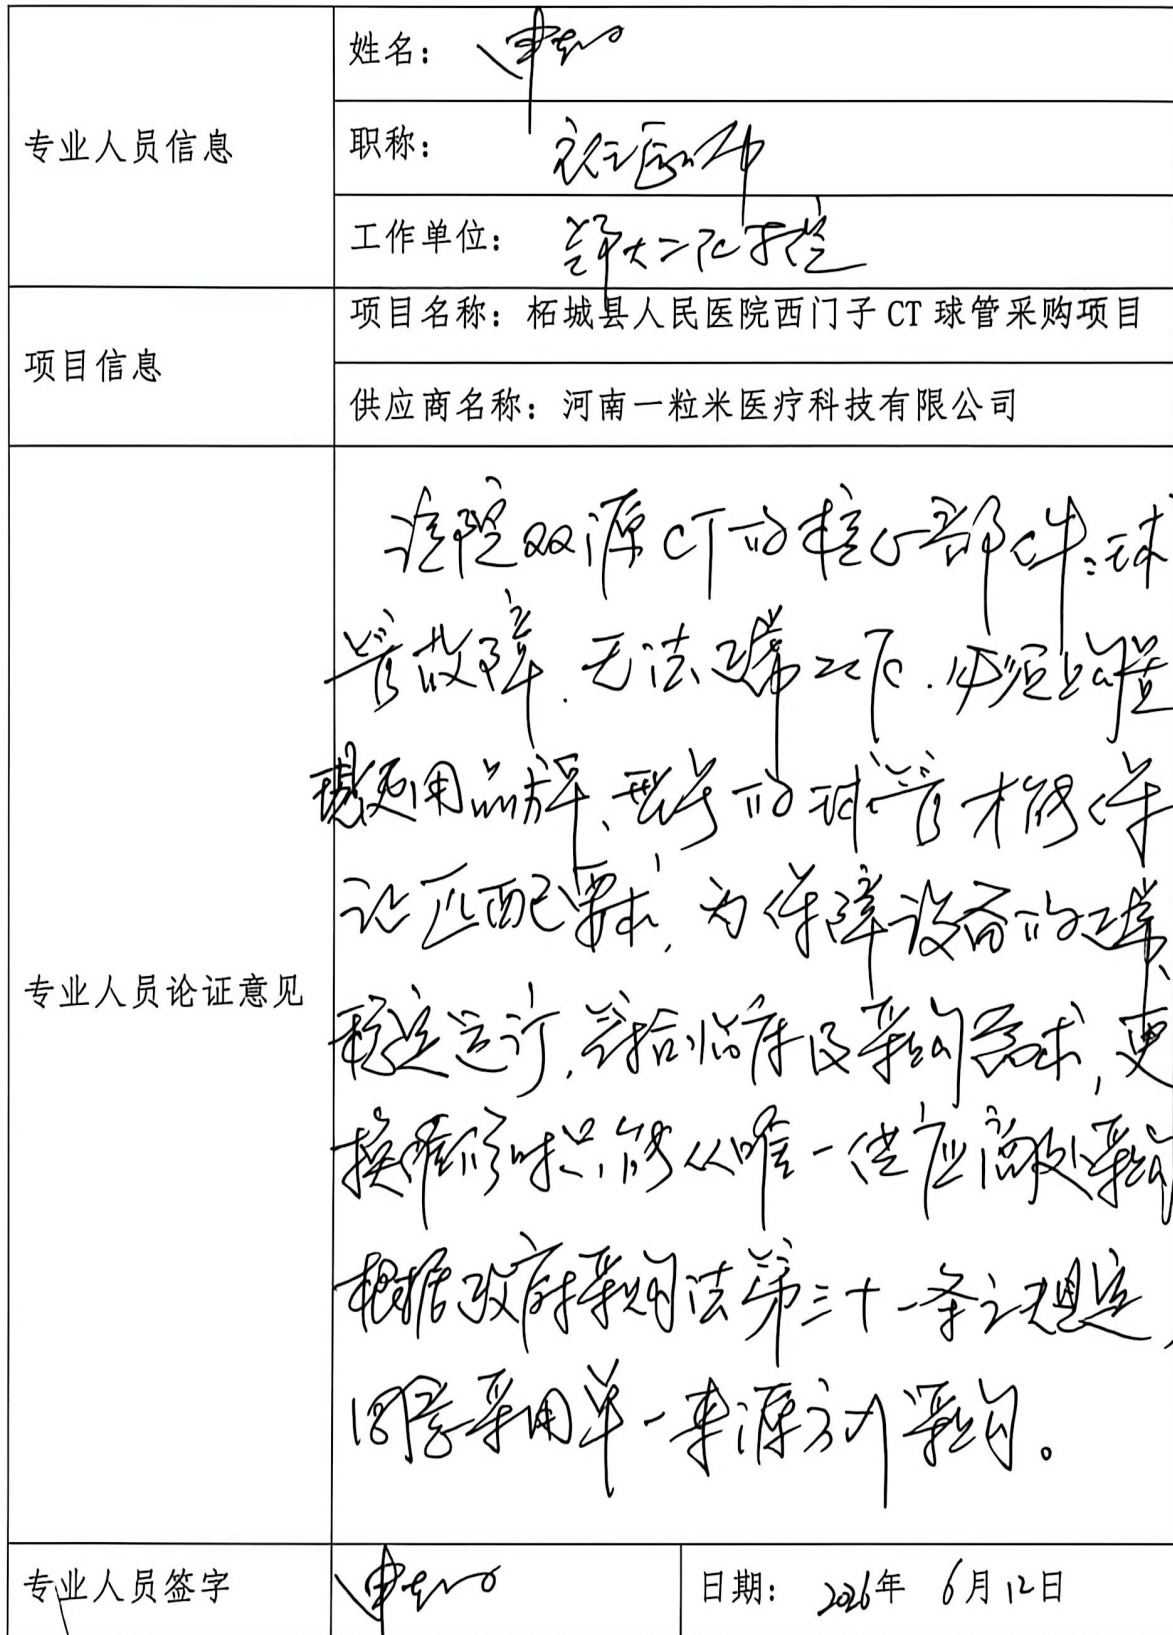 专业人员信息
姓名：申
职称：主任医师
工作单位：郑大二附院
项目信息
项目名称：柘城县人民医院西门子 CT 球管采购项目
供应商名称：河南一粒米医疗科技有限公司
专业人员论证意见
该院双源CT的核心部件：球
管故障，无法正常工作，必须购置
现使用品牌、型号的球管才能保
证匹配要求，为保障设备的正常、
稳定运行，结合临床及采购需求，更
换维修时只能从唯一供应商处采购
根据政府采购法第三十一条之规定，
同意采用单一来源方式采购。
专业人员签字
申
日期：2026年 6月12日